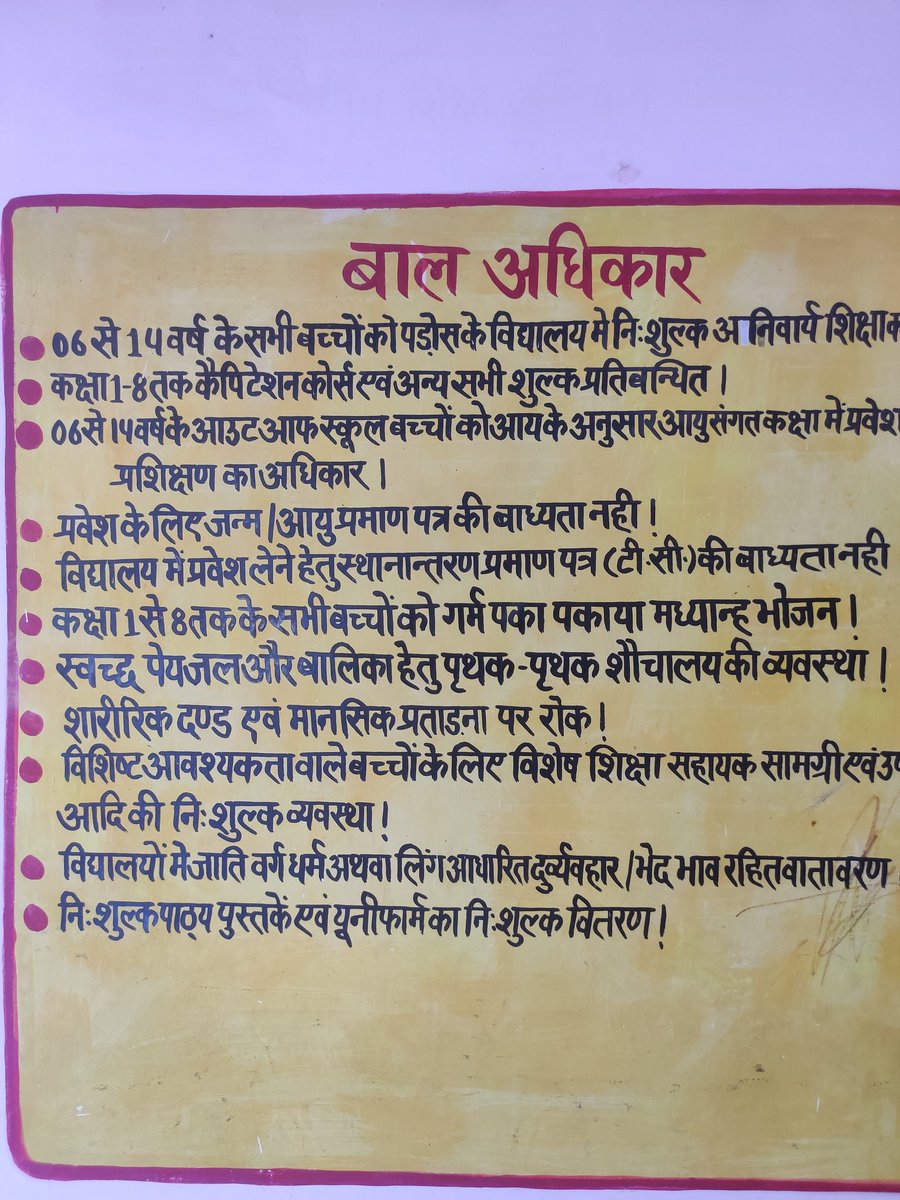 बाल अधिकार
06 से 14 वर्ष के सभी बच्चों को पड़ोस के विद्यालय मे निःशुल्क अनिवार्य शिक्षा
कक्षा 1-8 तक कैपिटेशन कोर्स एवं अन्य सभी शुल्क प्रतिबन्धित।
06 से 14 वर्ष के आउट आफ स्कूल बच्चों को आय के अनुसार आयु संगत कक्षा में प्रवेश
प्रशिक्षण का अधिकार।
प्रवेश के लिए जन्म/आयु प्रमाण पत्र की बाध्यता नही!
विद्यालय में प्रवेश लेने हेतु स्थानान्तरण प्रमाण पत्र (टी.सी.) की बाध्यता नही
कक्षा 1 से 8 तक के सभी बच्चों को गर्म पका पकाया मध्यान्ह भोजन!
स्वच्द्ध पेयजल और बालिका हेतु पृथक-पृथक शौचालय की व्यवस्था!
शारीरिक दण्ड एवं मानसिक प्रताडना पर रोक!
विशिष्ट आवश्यकता वाले बच्चों के लिए विशेष शिक्षा सहायक सामग्री एवं
आदि की निःशुल्क व्यवस्था!
विद्यालयों मे जाति वर्ग धर्म अथवा लिंग आधारित दुर्व्यवहार/भेद भाव रहित वातावरण
निःशुल्क पाठ्य पुस्तकें एवं यूनीफार्म का निःशुल्क वितरण!